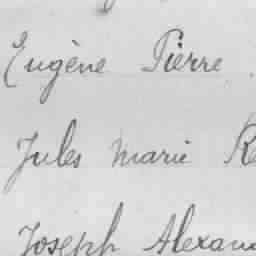 Eugène Pierre
Jules Marie
Joseph